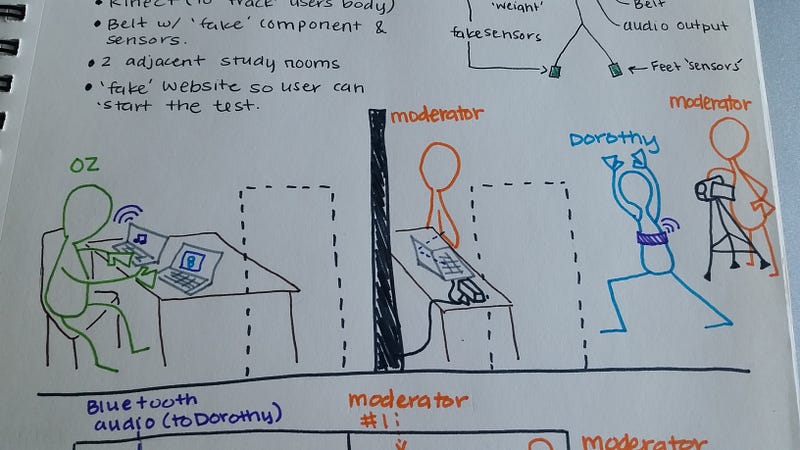 • Kinect (to 'track' users body)
• Belt w/ 'fake' component &
sensors.
• 2 adjacent study rooms
• 'fake' website so user can
start the test.
'weight'
fake sensors
Belt
audio output
Feet 'sensors'
OZ
moderator
Dorothy
moderator
Bluetooth
audio (to Dorothy)
moderator
#1:
moderator